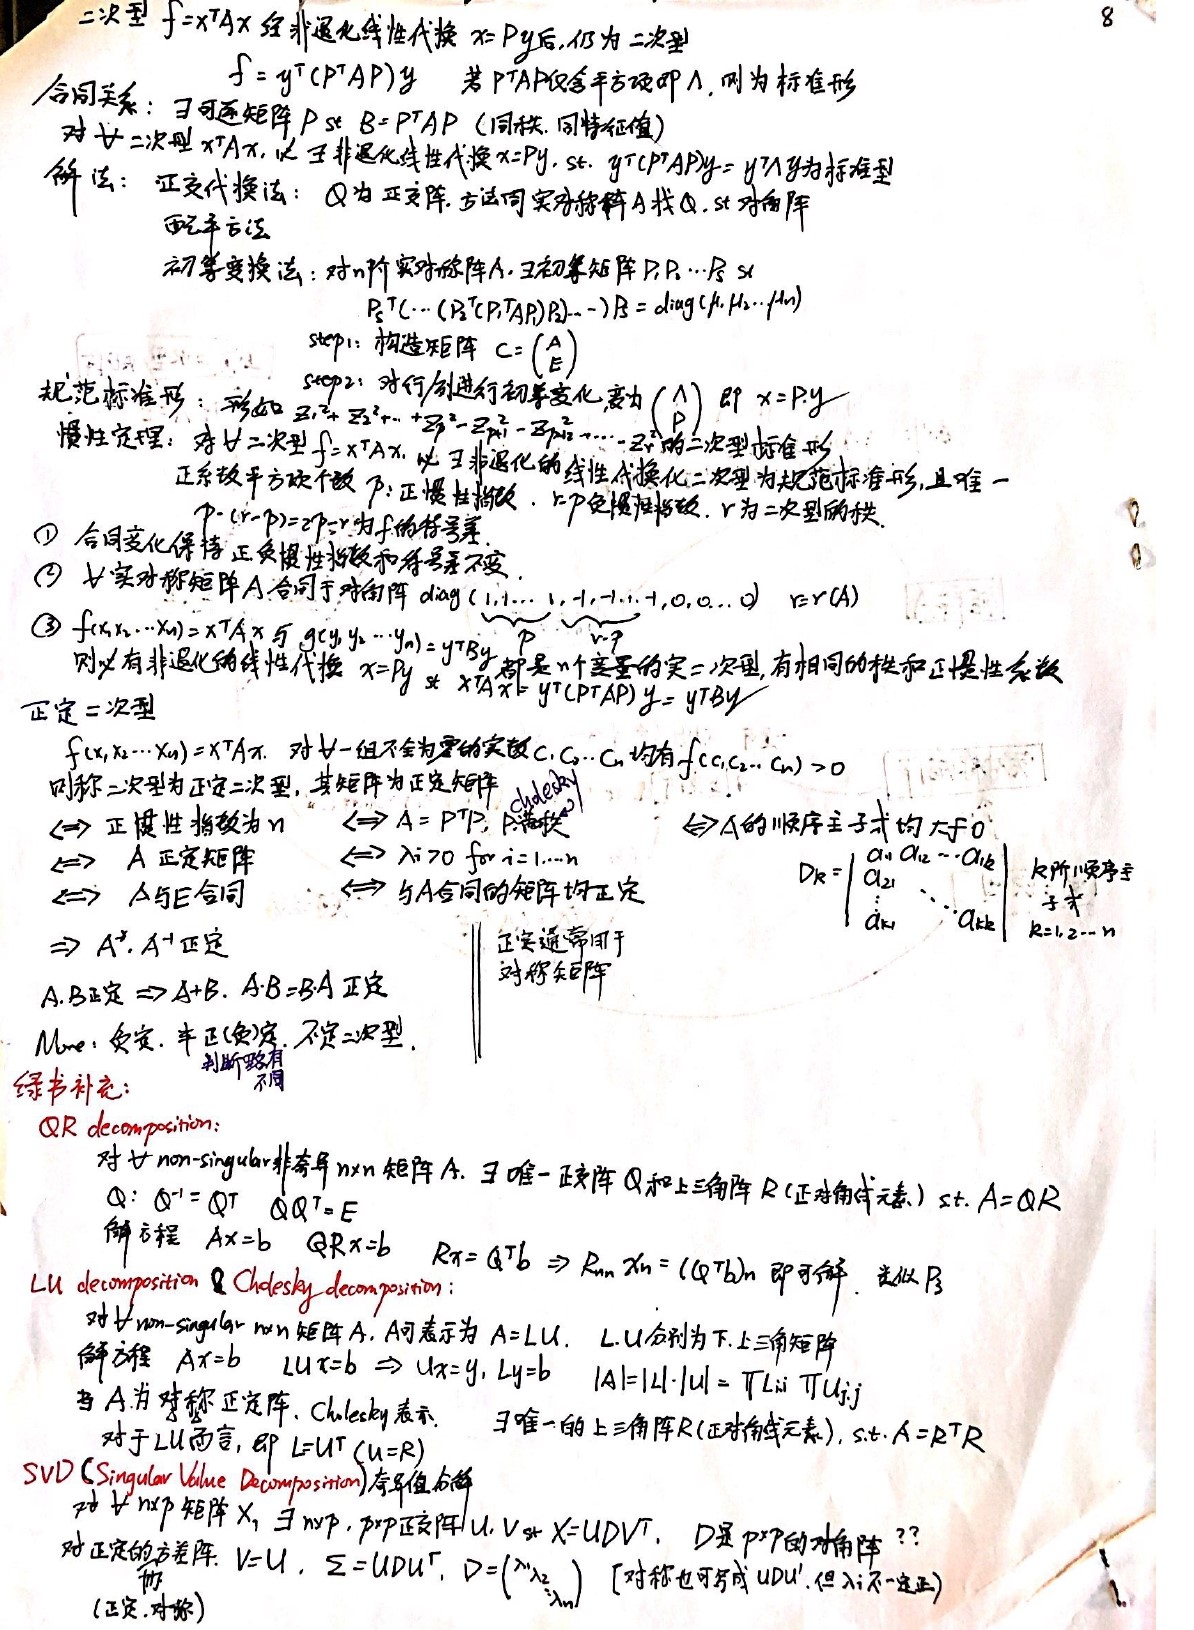 8
二次型 f=xᵀAx 经非退化线性代换 x=Py后,仍为二次型
f = yᵀ(PᵀAP)y 若PᵀAP仅含平方项即Λ,则为标准形
合同关系: ∃可逆矩阵 P st B=PᵀAP (同秩.同特征值)
对∀二次型xᵀAx, 必∃非退化线性代换x=Py, st. yᵀ(PᵀAP)y = yᵀΛy为标准型
解法: 正交代换法: Q为正交阵.方法同实对称阵A找Q.st对角阵
配平方法
初等变换法: 对n阶实对称阵A.∃初等矩阵P₁P₂…Ps st
Psᵀ(…(P₂ᵀ(P₁ᵀAP₁)P₂)…)Ps = diag(μ₁.μ₂…μn)
step1: 构造矩阵 C=(A E)
step2: 对行/列进行初等变化,变为(Λ P) 即 x=P.y
规范标准形: 形如 z₁²+z₂²+…+zp²-z²p+1-z²p+2-…-zr²的二次型标准形
惯性定理: 对∀二次型f=xᵀAx, 必∃非退化的线性代换化二次型为规范标准形,且唯一
正系数平方项个数 p:正惯性指数. r-p负惯性指数. r为二次型的秩.
p-(r-p)=2p-r为f的符号差.
① 合同变化保持正负惯性指数和符号差不变.
② ∀实对称矩阵A合同于对角阵 diag(1,1…1,-1,-1…-1,0,0…0) r=r(A)
p r-p
③ f(x₁x₂…xn)=xᵀAx与g(y₁y₂…yn)=yᵀBy 都是n个变量的实二次型,有相同的秩和正惯性系数
则必有非退化的线性代换 x=Py st xᵀAx=yᵀ(PᵀAP)y=yᵀBy
正定二次型
f(x₁x₂…xn)=xᵀAx. 对∀一组不全为零的实数C₁C₂…Cn均有f(C₁C₂…Cn)>0
则称二次型为正定二次型, 其矩阵为正定矩阵
cholesky
⇔ 正惯性指数为n ⇔ A=PᵀP, P满秩 ⇔A的顺序主子式均大于0
⇔ A正定矩阵 ⇔ λi>0 for i=1…n
⇔ A与E合同 ⇔ 与A合同的矩阵均正定
Dk = | a₁₁ a₁₂ … a₁k a₂₁ ⋮ ⋱ ak₁ akk | k阶顺序主子式 k=1,2…n
⇒ A*.A⁻¹正定
正定通常用于
对称矩阵
A.B正定 ⇒ A+B. A·B=B·A 正定
More: 负定. 半正(负)定. 不定二次型.
判断略有
不同
绿书补充:
QR decomposition:
对∀non-singular非奇异n×n矩阵A. ∃唯一正交阵Q和上三角阵R(正对角线元素) s.t. A=QR
Q: Q⁻¹=Qᵀ QQᵀ=E
解方程 Ax=b QRx=b Rx=Qᵀb ⇒ Rnn xn=(Qᵀb)n 即可解. 类似P3
LU decomposition & Cholesky decomposition:
对∀non-singular n×n矩阵A. A可表示为 A=LU. L.U分别为下.上三角矩阵
解方程 Ax=b LUx=b ⇒ Ux=y, Ly=b |A|=|L|·|U|= ∏Li,i ∏Uj,j
当A为对称正定阵. Cholesky表示. ∃唯一的上三角阵R(正对角线元素), s.t. A=RᵀR
对于LU而言, 即 L=Uᵀ (U=R)
SVD (Singular Value Decomposition)奇异值分解
对∀n×p矩阵X, ∃n×p, p×p正交阵U,V st X=UDVᵀ. D是p×p的对角阵 ??
对正定的协方差阵. V=U. Σ=UDUᵀ. D=(λ₁ λ₂ ⋱ λn) [对称也可写成UDU'.但λi不一定正]
(正定.对称)